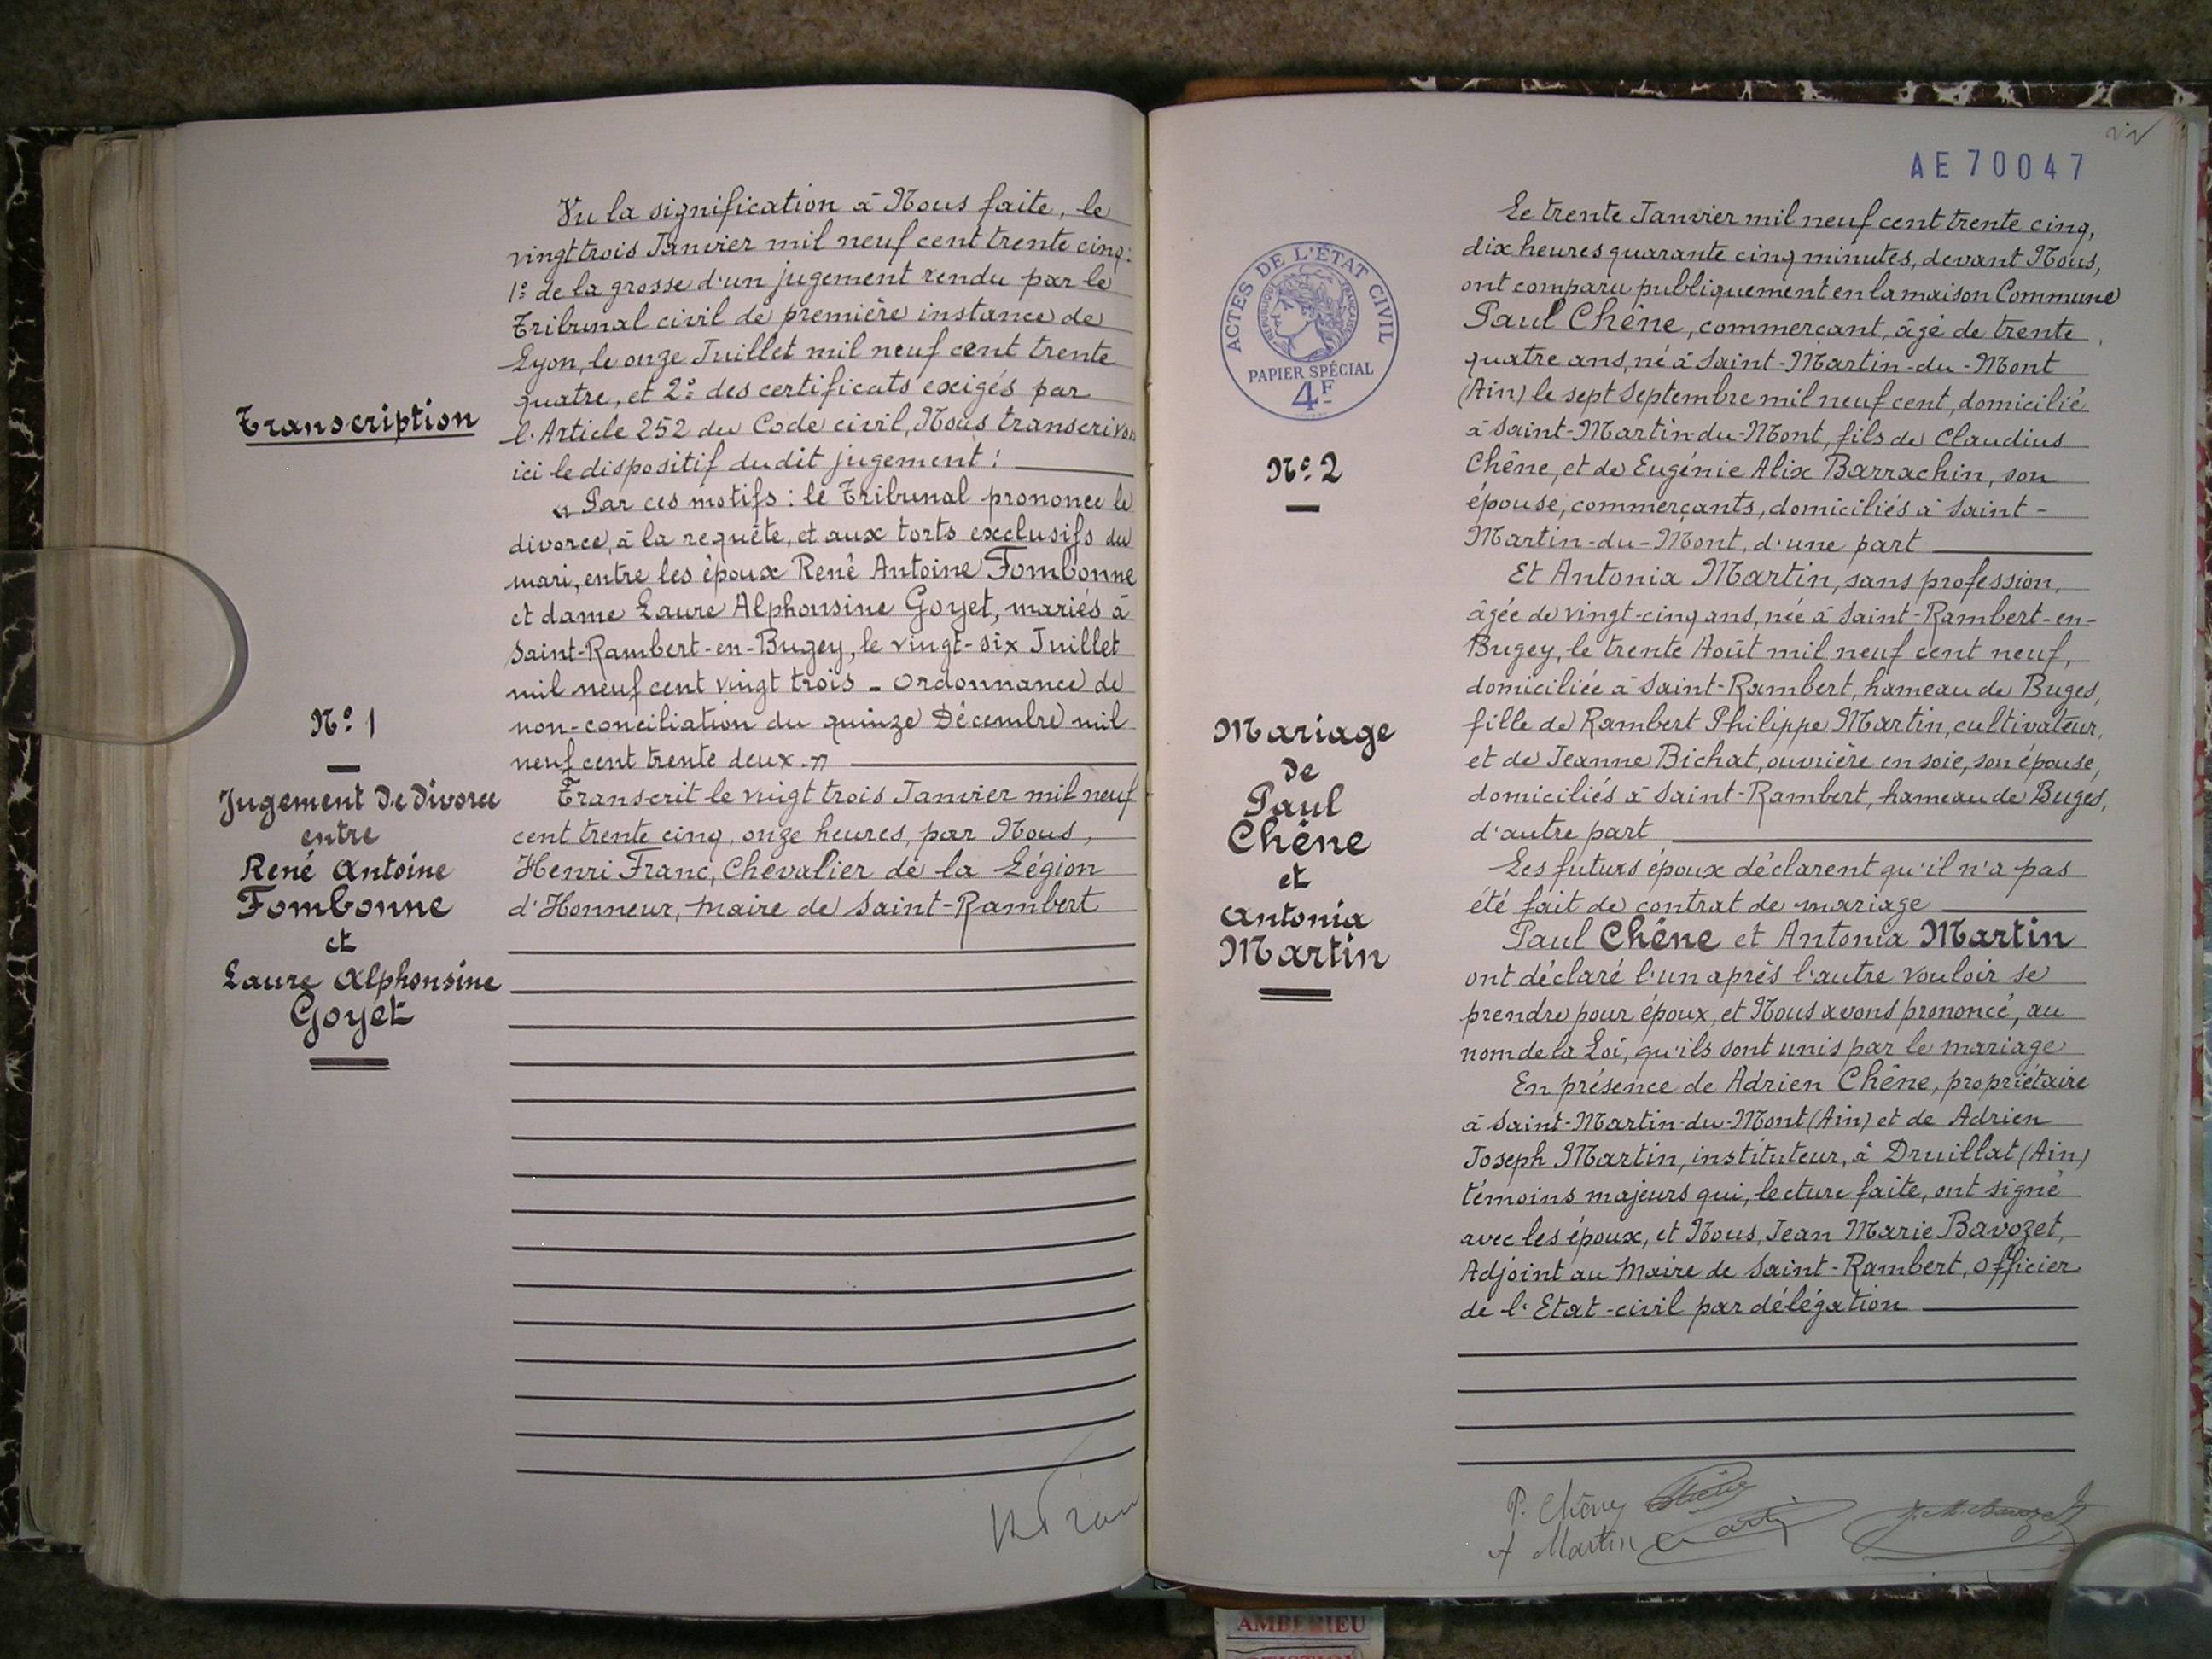 Transcription
N° 1
Jugement de divorce
entre
René Antoine
Fombonne
et
Laure Alphonsine
Goyet
Vu la signification à Nous faite, le
vingt trois Janvier mil neuf cent trente cinq:
1° de la grosse d'un jugement rendu par le
Tribunal civil de première instance de
Lyon, le onze Juillet mil neuf cent trente
quatre, et 2° des certificats exigés par
l'Article 252 du Code civil, Nous transcrivons
ici le dispositif du dit jugement:
" Par ces motifs: le Tribunal prononce le
divorce, à la requête, et aux torts exclusifs du
mari, entre les époux René Antoine Fombonne
et dame Laure Alphonsine Goyet, mariés à
Saint-Rambert-en-Bugey, le vingt-six Juillet
mil neuf cent vingt trois - Ordonnance de
non-conciliation du quinze Décembre mil
neuf cent trente deux."
Transcrit le vingt trois Janvier mil neuf
cent trente cinq, onze heures, par Nous,
Henri Franc, Chevalier de la Légion
d'Honneur, Maire de Saint-Rambert
AE70047
ACTES DE L'ÉTAT CIVIL
RÉPUBLIQUE FRANÇAISE
PAPIER SPÉCIAL
4F
N° 2
Mariage
de
Paul
Chêne
et
Antonia
Martin
Le trente Janvier mil neuf cent trente cinq,
dix heures quarante cinq minutes, devant Nous,
ont comparu publiquement en la maison Commune
Paul Chêne, commerçant, âgé de trente
quatre ans, né à Saint-Martin-du-Mont
(Ain) le sept Septembre mil neuf cent, domicilié
à Saint-Martin-du-Mont, fils de Claudius
Chêne, et de Eugénie Alix Barrachin, son
épouse, commerçants, domiciliés à Saint-
Martin-du-Mont, d'une part
Et Antonia Martin, sans profession,
âgée de vingt-cinq ans, née à Saint-Rambert-en-
Bugey, le trente Août mil neuf cent neuf,
domiciliée à Saint-Rambert, hameau de Buges,
fille de Rambert Philippe Martin, cultivateur,
et de Jeanne Bichat, ouvrière en soie, son épouse,
domiciliés à Saint-Rambert, hameau de Buges,
d'autre part
Les futurs époux déclarent qu'il n'a pas
été fait de contrat de mariage
Paul Chêne et Antonia Martin
ont déclaré l'un après l'autre vouloir se
prendre pour époux, et Nous avons prononcé, au
nom de la Loi, qu'ils sont unis par le mariage
En présence de Adrien Chêne, propriétaire
à Saint-Martin-du-Mont (Ain) et de Adrien
Joseph Martin, instituteur, à Druillat (Ain)
témoins majeurs qui, lecture faite, ont signé
avec les époux, et Nous, Jean Marie Bavozet,
Adjoint au Maire de Saint-Rambert, Officier
de l'Etat-civil par délégation
P. Chêne
A Martin
J. M. Bavozet
AMBERIEU